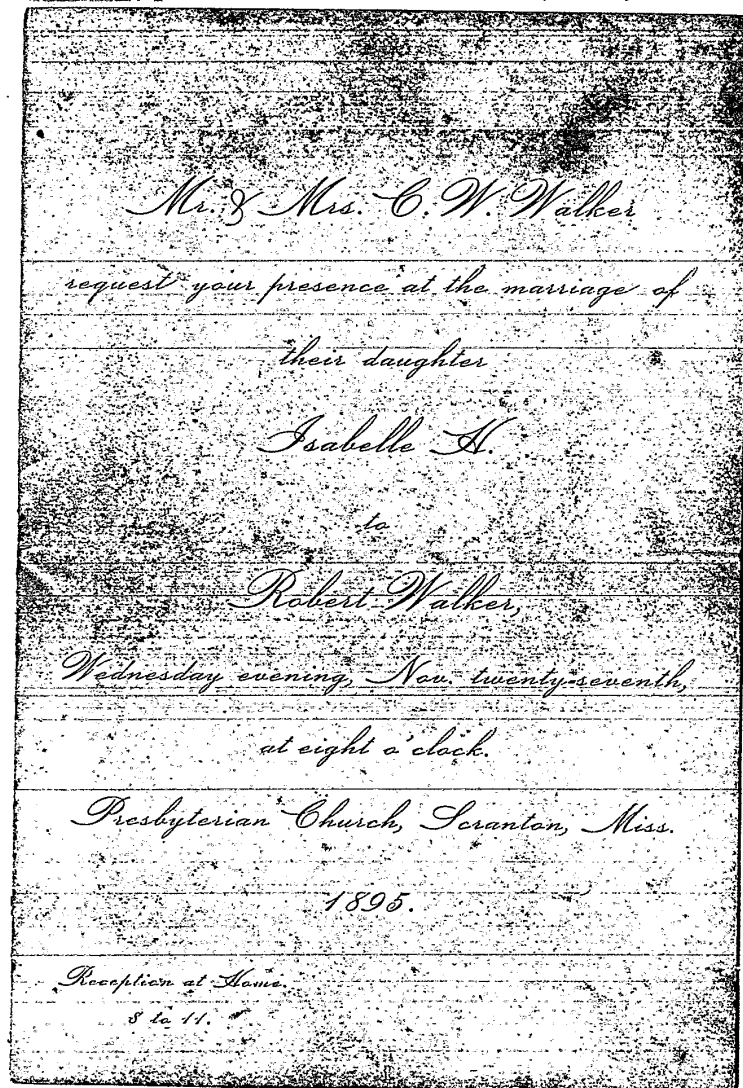 Mr. & Mrs. C. W. Walker
request your presence at the marriage of
their daughter
Isabelle H.
to
Robert Walker,
Wednesday evening, Nov. twenty-seventh,
at eight o'clock.
Presbyterian Church, Scranton, Miss.
1895.
Reception at Home.
8 to 11.